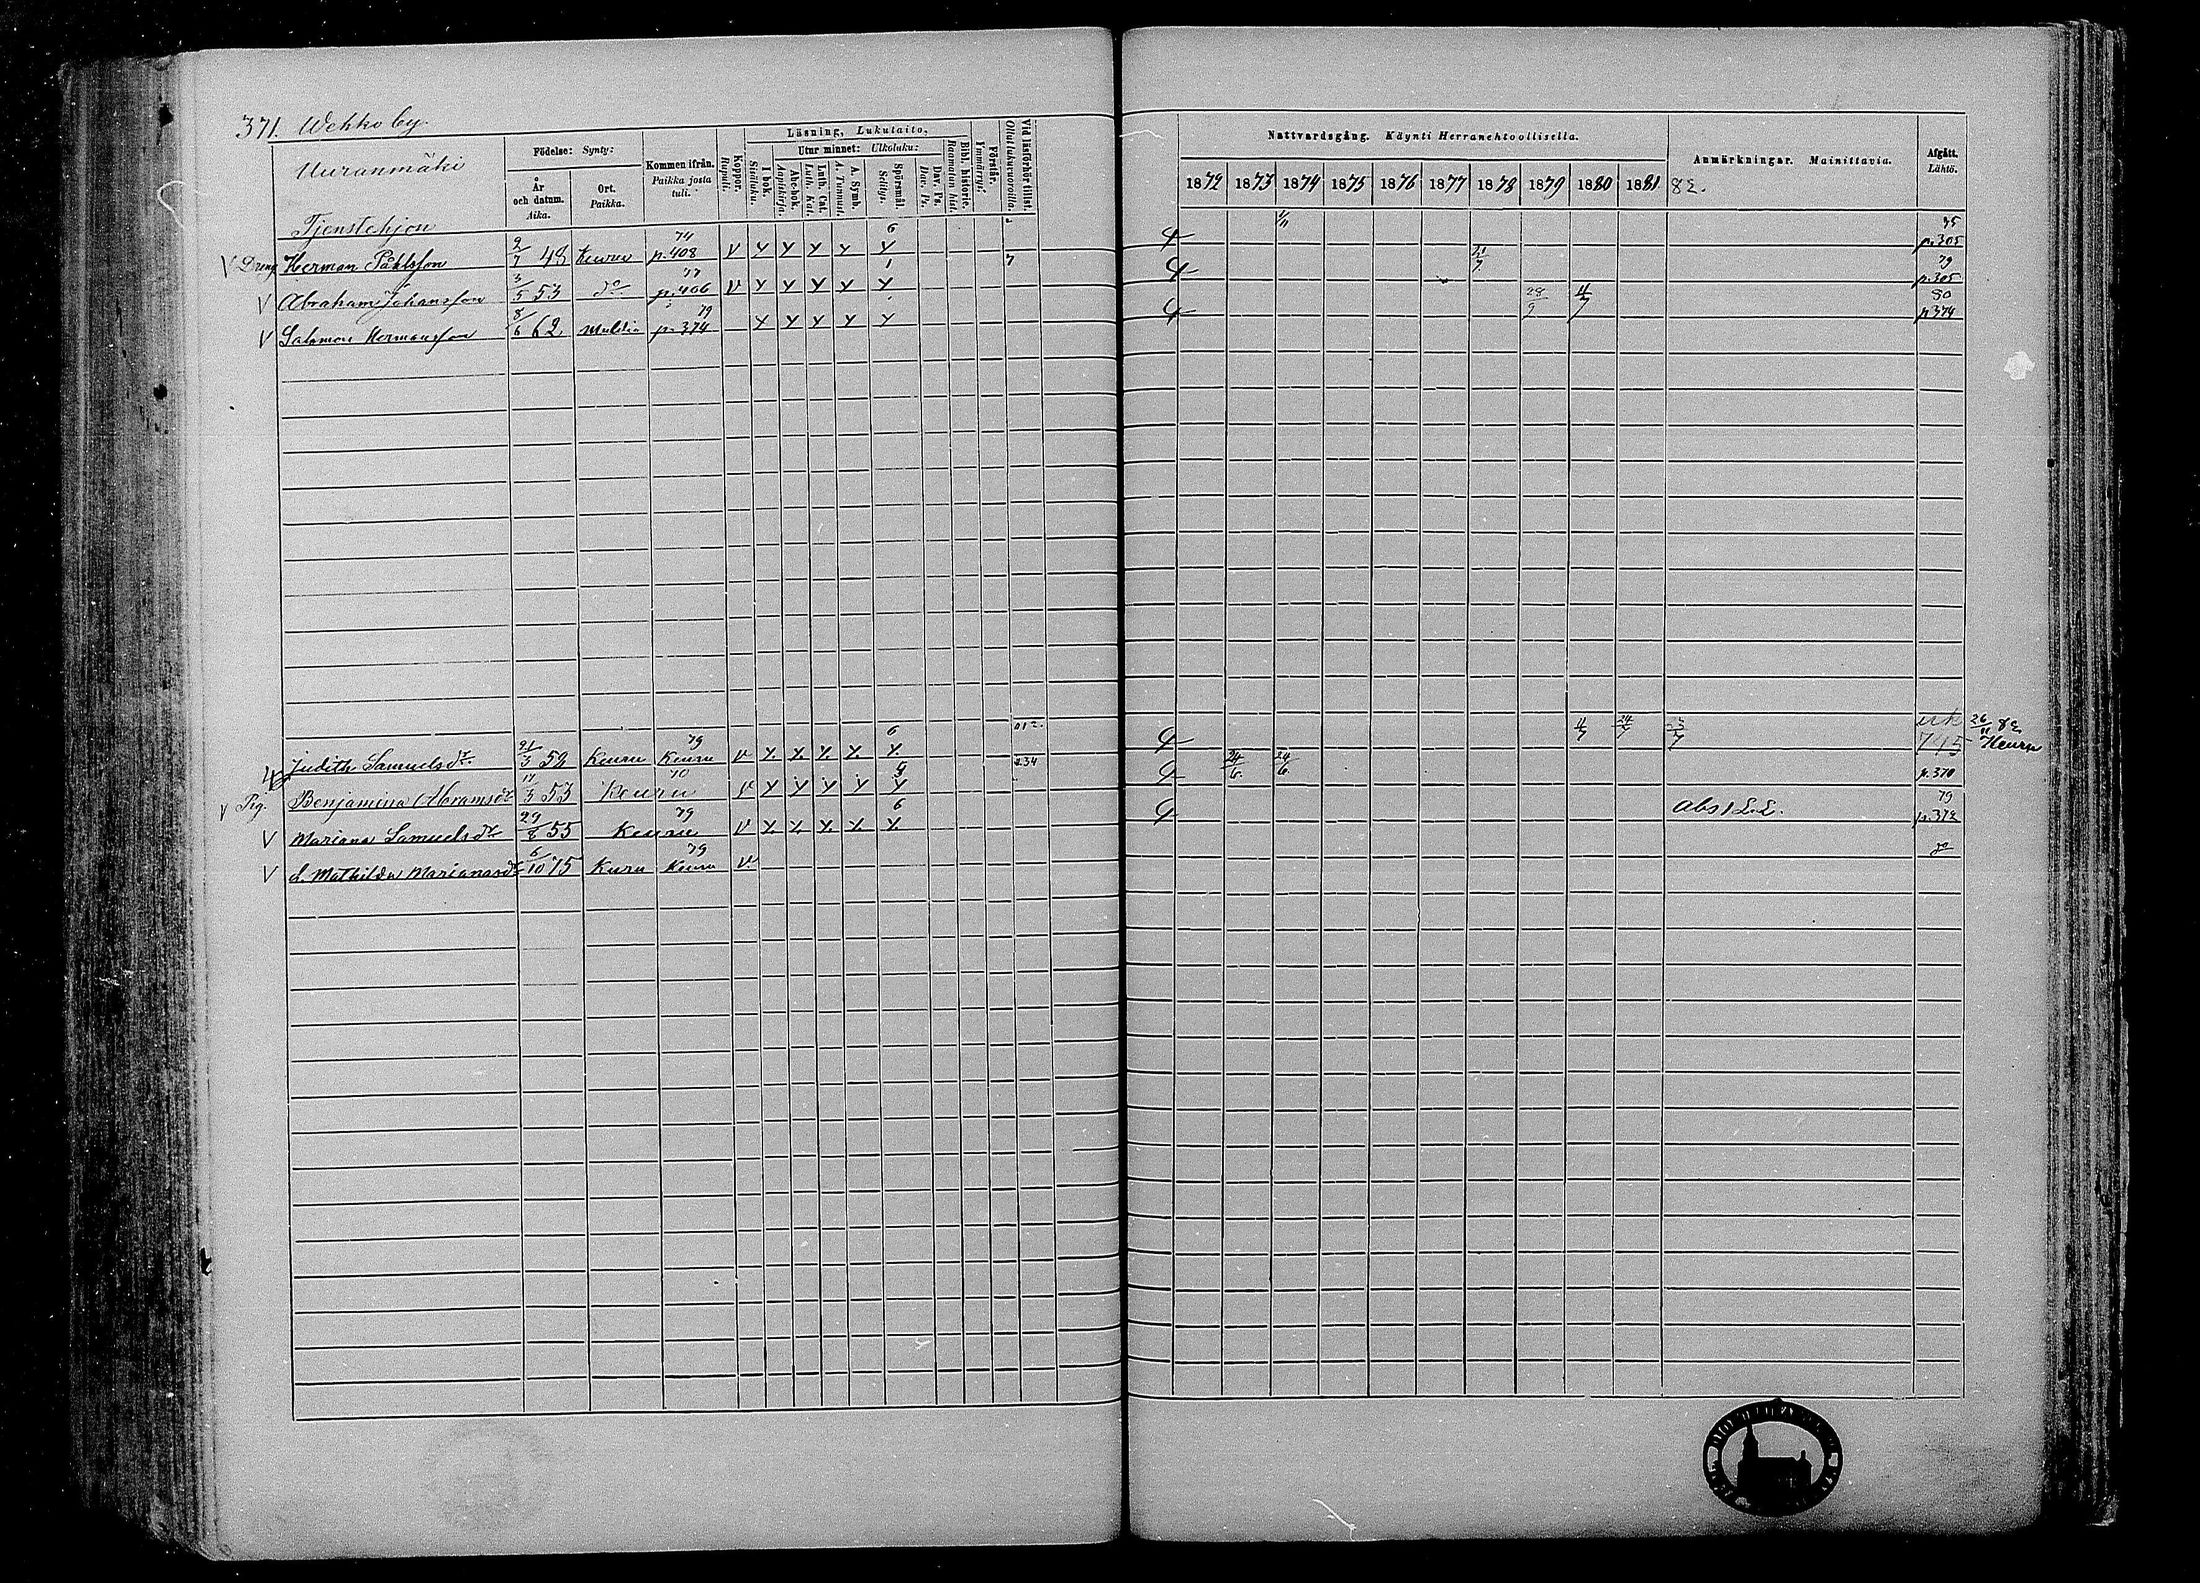 371. Wehko by.
Uuranmäki
Födelse: Synty:
År och datum. Aika.
Ort. Paikka.
Kommen ifrån. Paikka josta tuli.
Koppor. Rupuli.
Läsning, Lukutaito,
I bok. Sisäluku.
Utur minnet: Ulkoluku:
Abc-bok. Aapiskirja.
Luth. Cat. Luth. Kat.
A. Symb. A. Tunnust.
Spörsmål. Selitys.
Dav. Ps. Dav. Ps.
Bibl. historie. Raamatun hist.
Förstår. Ymmärrys.
Vid läsförhör tillst. Ollut lukuvuoroilla.
Nattvardsgång. Käynti Herranehtoollisella.
1872 1873 1874 1875 1876 1877 1878 1879 1880 1881 82.
Anmärkningar. Mainittavia.
Afgått. Lähtö.
Tjenstehjon
V Dreng Herman Påhlsson 2/7 48 Keuru 74 p.408 V Y Y Y Y 6 Y 1/11 75 p.305
V Abraham Johansson 3/5 53 do 77 p.406 V Y Y Y Y 1 Y 7 79 p.305
V Salomon Hermansson 8/6 62 Multia 79 p.374 Y Y Y Y Y 28/9 4/7 80 p.374
Judith Samuelsdr 52 Keuru 79 Keuru V Y Y Y Y 6 Y 012. 4/7 24/7 745 26/11 82 Keuru
V Pig. Benjamina Abramsdr 53 Keuru 70 V Y Y Y Y Y 234 24/6 24/6 p.370
V Mariana Samuelsdr 29/8 55 Keuru 79 V Y Y Y Y 6 Y abs 1 L.L. 79 p.372
V d. Mathilda Marianasdr 6/10 75 Kuru 79 Keuru V do